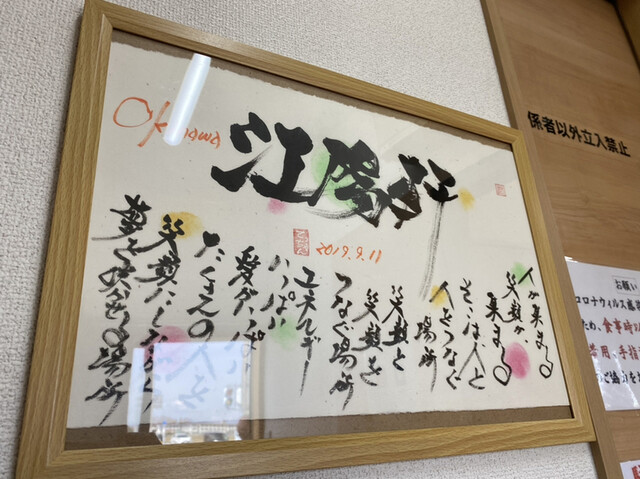 江陽軒
2019.9.11
人が集まる
笑顔が
集まる
そこは人と
人をつなぐ
場所
笑顔と
笑顔を
つなぐ場所
エネルギー
いっぱい
愛がいっぱい
たくさんの人を
笑顔にし
夢を咲かせる場所
係者以外立入禁止
お願い
コロナウィルス感
ため、食事時
着用、手指
ご協力を